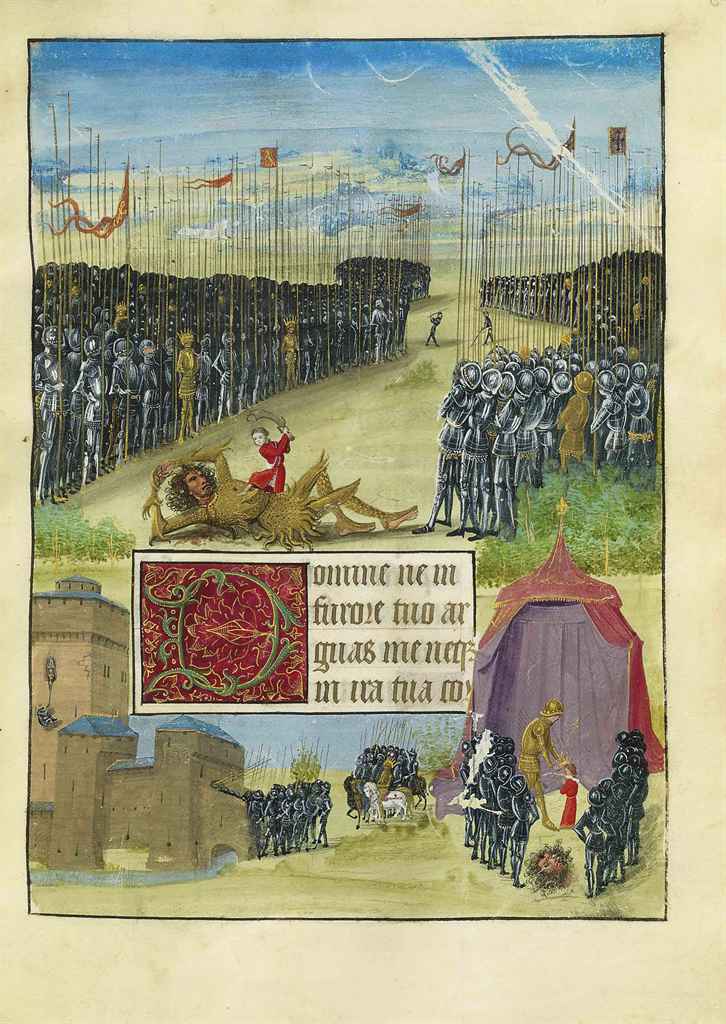 Domine ne in
furore tuo ar
guas me neqꝫ
in ira tua co